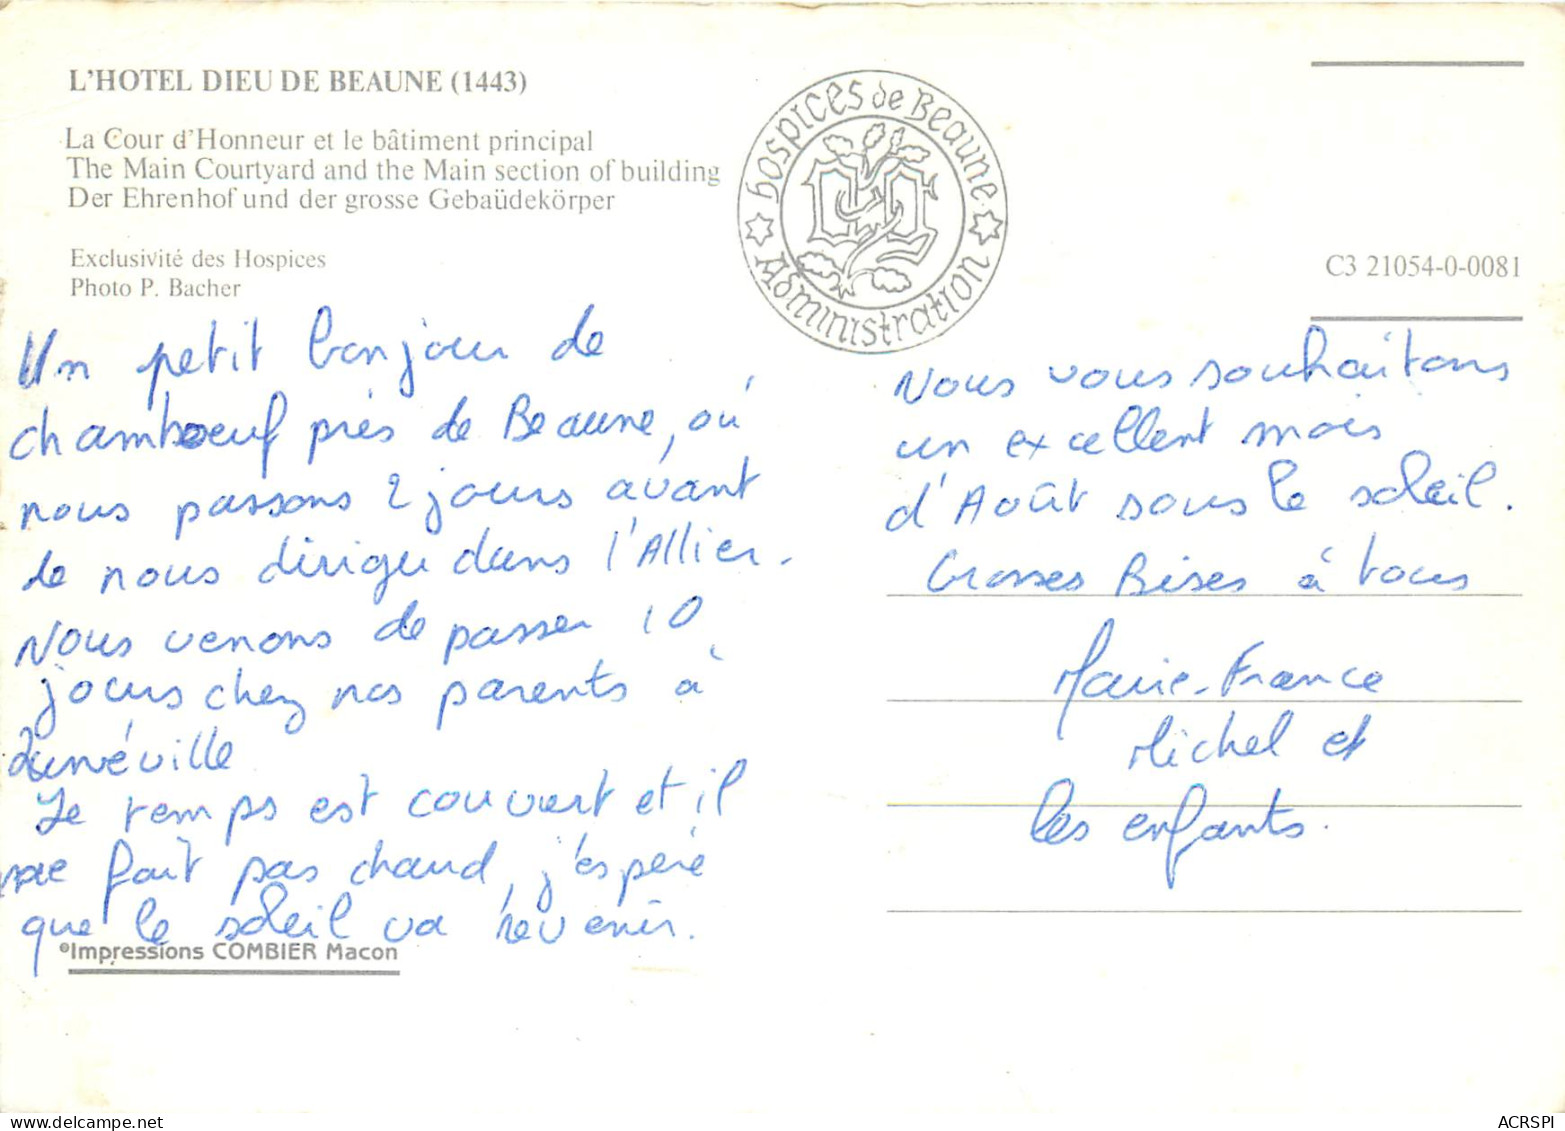 L'HOTEL DIEU DE BEAUNE (1443)
La Cour d'Honneur et le bâtiment principal
The Main Courtyard and the Main section of building
Der Ehrenhof und der grosse Gebaüdekörper
Exclusivité des Hospices
Photo P. Bacher
hospices de Beaune
Administration
C3 21054-0-0081
Un petit bonjour de
chambœuf près de Beaune, où
nous passons 2 jours avant
de nous diriger dans l'Allier.
Nous venons de passer 10
jours chez nos parents à
Lunéville
Le temps est couvert et il
ne fait pas chaud, j'espère
que le soleil va revenir.
©Impressions COMBIER Macon
Nous vous souhaitons
un excellent mois
d'Août sous le soleil.
Grosses Bises à tous
Marie-France
Michel et
les enfants.
delcampe.net
ACRSPI